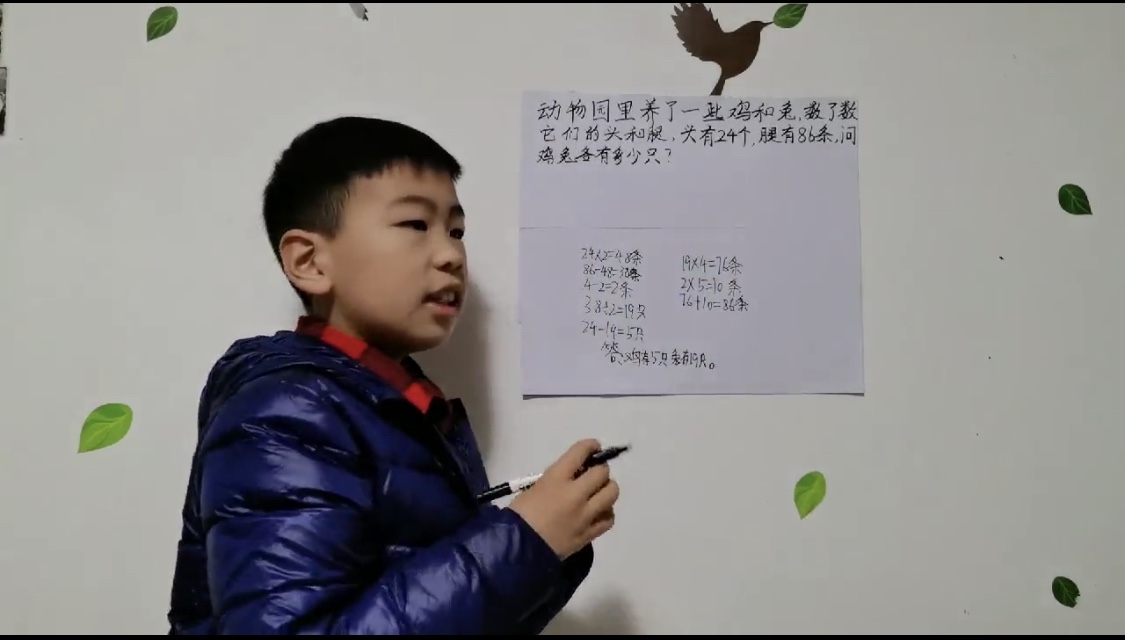 动物园里养了一些鸡和兔,数了数
它们的头和腿,头有24个,腿有86条,问
鸡兔各有多少只?
24×2=48条
86-48=38条
4-2=2条
38÷2=19只
24-19=5只
19×4=76条
2×5=10条
76+10=86条
答:鸡有5只兔有19只。